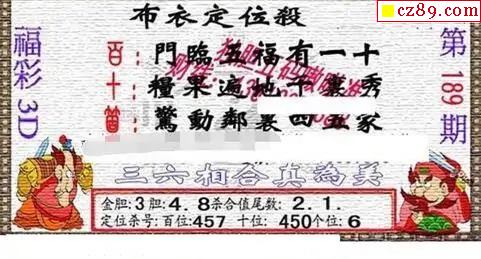 cz89.com
布衣定位殺
福彩3D
第189期
百:門臨五福有一十
十:糧果遍地千裏秀
個:驚動鄰裏四五家
三六相合真為美
金胆:3胆:4.8杀合值尾数:2.1.
定位杀号:百位:457 十位:450个位:6